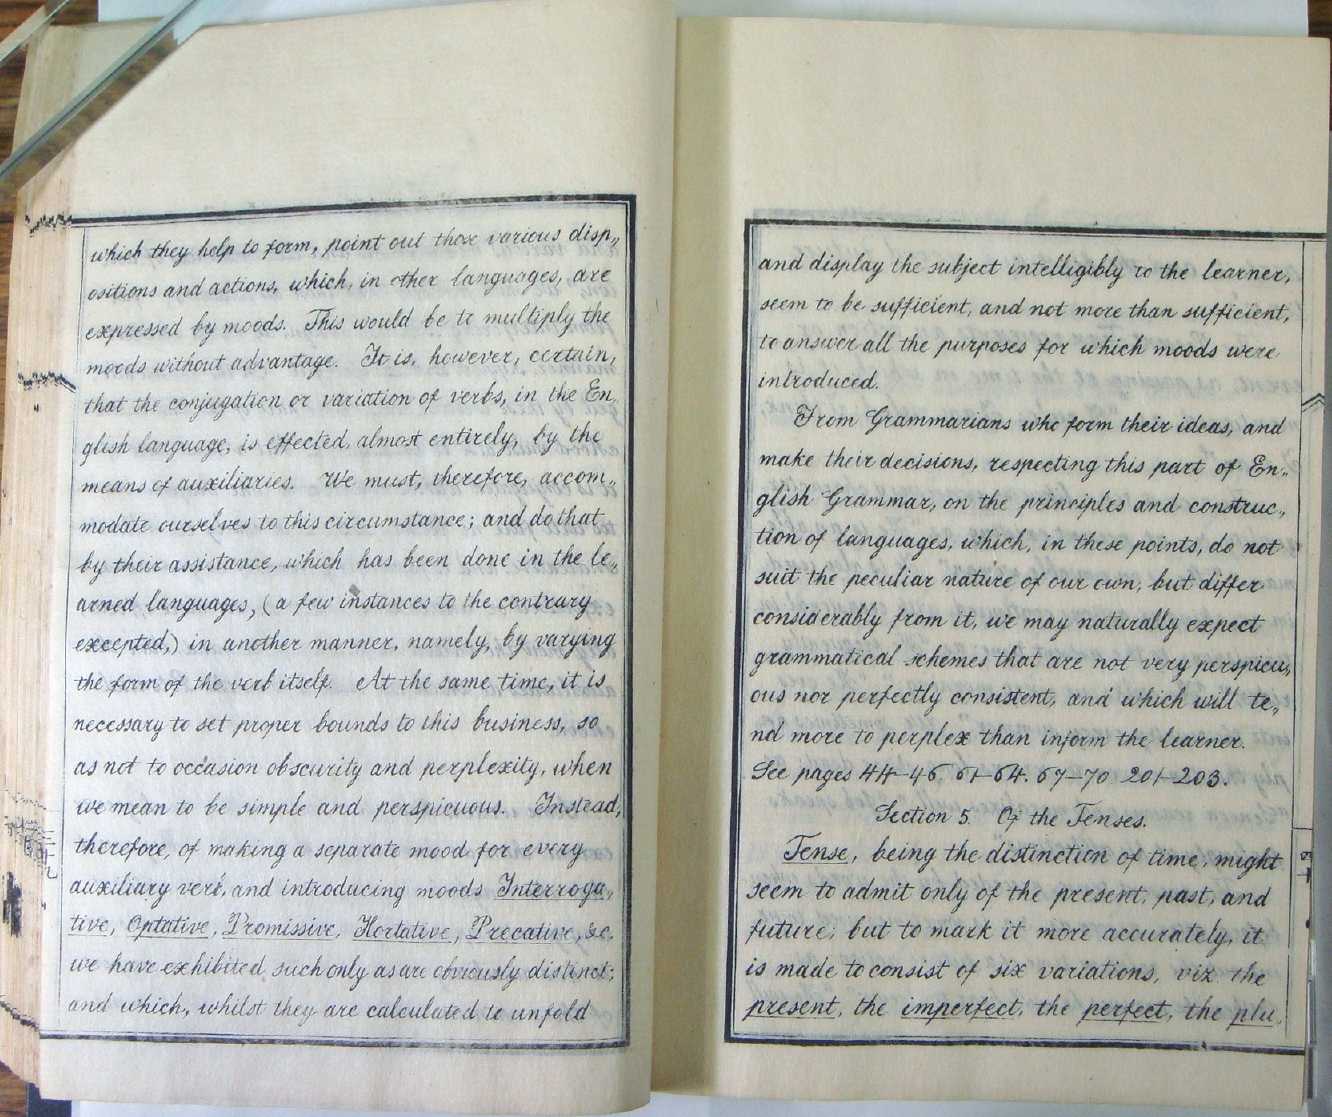 which they help to form, point out those various disp„
ositions and actions, which, in other languages, are
expressed by moods. This would be to multiply the
moods without advantage. It is, however, certain,
that the conjugation or variation of verbs, in the En„
glish language, is effected, almost entirely, by the
means of auxiliaries. We must, therefore, accom„
modate ourselves to this circumstance; and do that
by their assistance, which has been done in the le„
arned languages, (a few instances to the contrary
excepted,) in another manner, namely, by varying
the form of the verb itself. At the same time, it is
necessary to set proper bounds to this business, so
as not to occasion obscurity and perplexity, when
we mean to be simple and perspicuous. Instead,
therefore, of making a separate mood for every
auxiliary verb, and introducing moods Interroga„
tive, Optative, Promissive, Hortative, Precative, &c.
we have exhibited such only as are obviously distinct;
and which, whilst they are calculated to unfold
and display the subject intelligibly to the learner,
seem to be sufficient, and not more than sufficient,
to answer all the purposes for which moods were
introduced.
From Grammarians who form their ideas, and
make their decisions, respecting this part of En„
glish Grammar, on the principles and construc„
tion of languages, which, in these points, do not
suit the peculiar nature of our own, but differ
considerably from it, we may naturally expect
grammatical schemes that are not very perspicu„
ous nor perfectly consistent, and which will te„
nd more to perplex than inform the learner.
See pages 44–46. 61–64. 67–70 201–203.
Section 5. Of the Tenses.
Tense, being the distinction of time, might
seem to admit only of the present, past, and
future; but to mark it more accurately, it
is made to consist of six variations, viz. the
present, the imperfect, the perfect, the plu„